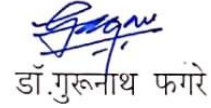 डॉ.गुरूनाथ फगरे